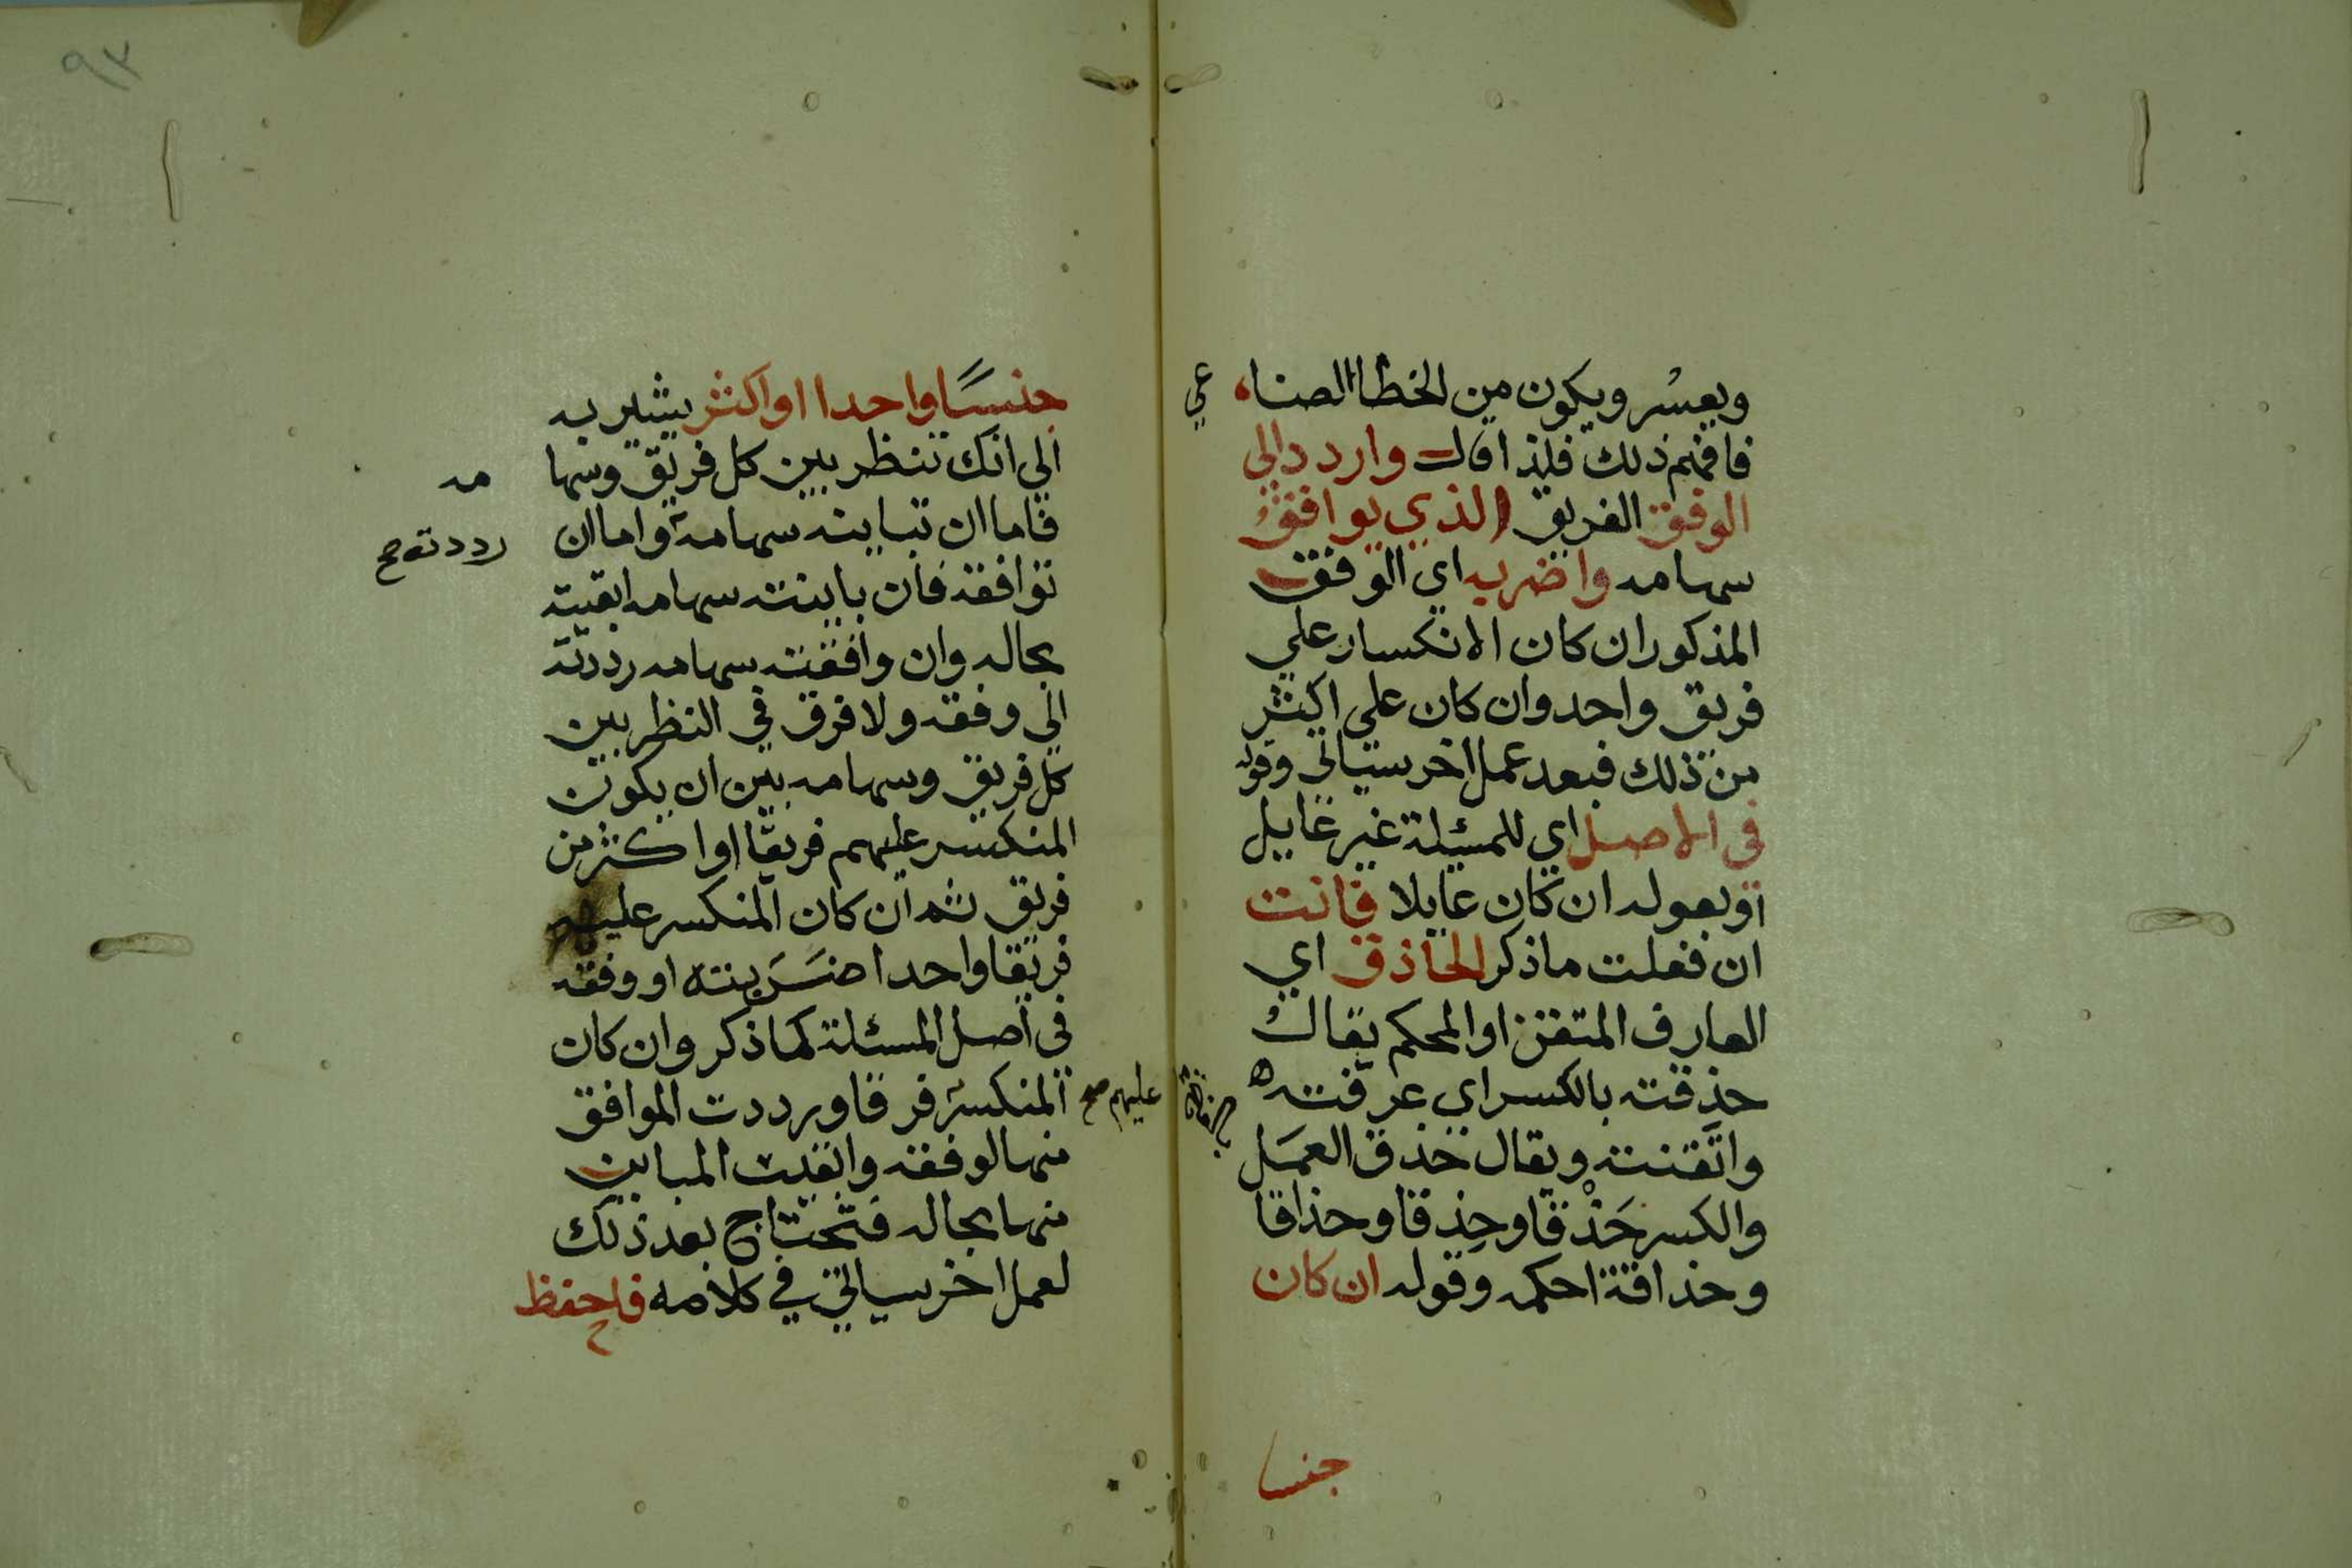 ويعسُر ويكون من الخطا الصناعي
فافهم ذلك فلذا قال واردد الي
الوفق الفريق الذي يوافقُ
سهامه واضربه اي الوفق
المذكور ان كان الانكسار علي
فريق واحد وان كان علي اكثر
من ذلك فبعد عمل اخر سياتي وقوله
في الاصل اي للمسئلة غير عايل
او بعوله ان كان عايلا فانت
ان فعلت ما ذكر الحاذق اي
العارف المتقن او المحكم يقال
حذقته بالكسر اي عرفته
واتقنته ويقال حذق العمَل بالفتح
والكسر حَذْقا وحِذقا وحذاقا
وحذاقة احكمه وقوله ان كان
جنسا
٩٣
جنسًا واحدا او اكثر يشير به
الي انك تنظر بين كل فريق وسهامه
فاما ان تباينه سهامه واما ان
توافقه فان باينته سهامه ابقيته
بحاله وان وافقته سهامه رددته
الي وفقه ولا فرق في النظر بين
كل فريق وسهامه بين ان يكون
المنكسر عليهم فريقا او اكثر من
فريق ثم ان كان المنكسر عليهم
فريقا واحدا ضَرَبته او وفقه
في اصل المسئلة كما ذكر وان كان
المنكسر عليهم صح فرقا ورددت الموافق
منها لوفقه وابقيت المباين
منها بحاله فتحتاج بعد ذلك
لعمل اخر سياتي في كلامه فاحفظ
رددته صح